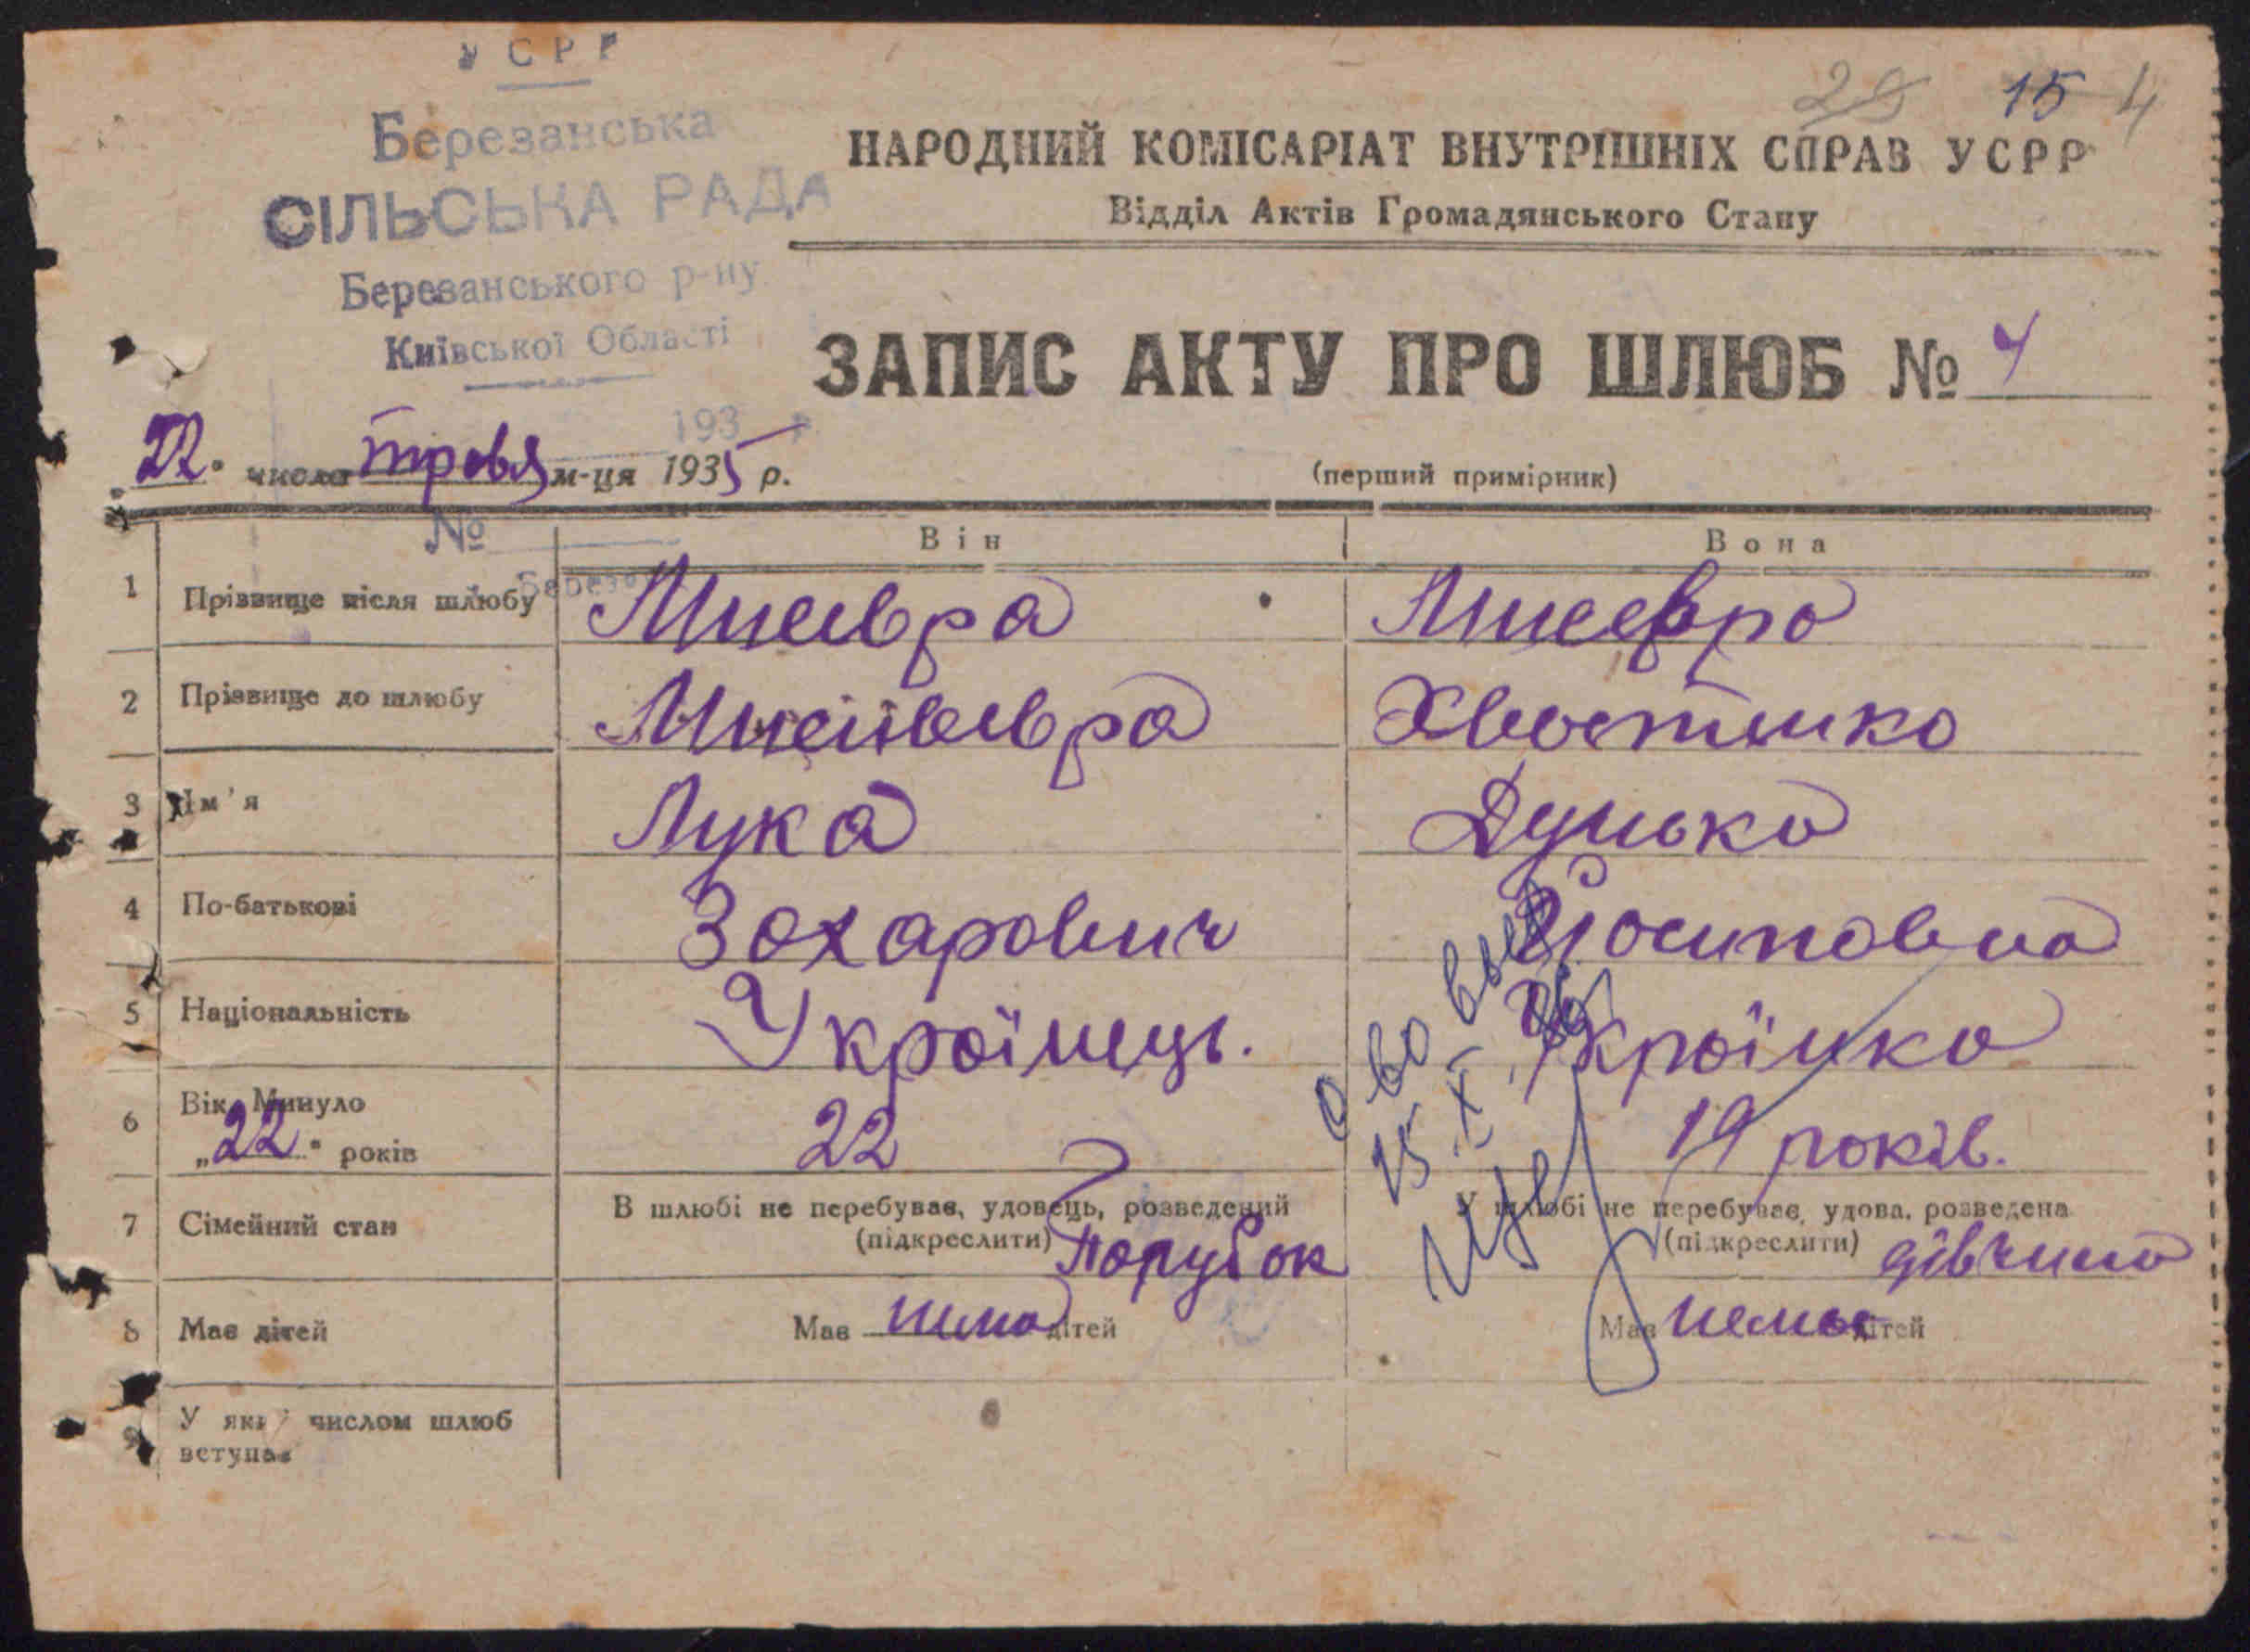 УСРР
Березанська
СІЛЬСЬКА РАДА
Березанського р-ну
Київської Області
193 р.
№
29 15 4
НАРОДНИЙ КОМІСАРІАТ ВНУТРІШНІХ СПРАВ УСРР
Відділ Актів Громадянського Стану
ЗАПИС АКТУ ПРО ШЛЮБ № 4
„22" числа травя м-ця 1935 р.
(перший примірник)
Він Вона
1 Прізвище після шлюбу
2 Прізвище до шлюбу Хвостенко
3 Ім'я Лука Дунька
4 По-батькові Захарович Йосиповна
5 Національність Українець. Українка
6 Вік. Минуло „22" років 22 19 років.
7 Сімейний стан В шлюбі не перебував, удовець, розведений (підкреслити) Парубок У шлюбі не перебуває, удова, розведена (підкреслити) дівчина
8 Має дітей Має нема дітей Має немає дітей
9 У яке числом шлюб вступає